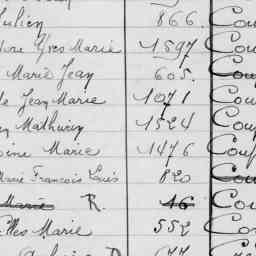 Julien 866. Cou
Yves Marie 1597 Cou
Marie Jean 605. Cou
Jean Marie 1071 Cou
Mathurin 1524 Cou
Marie 1476 Coup
Marie François Louis 820 Cou
Marie R 16 Cou
Marie 552 Co
D 77